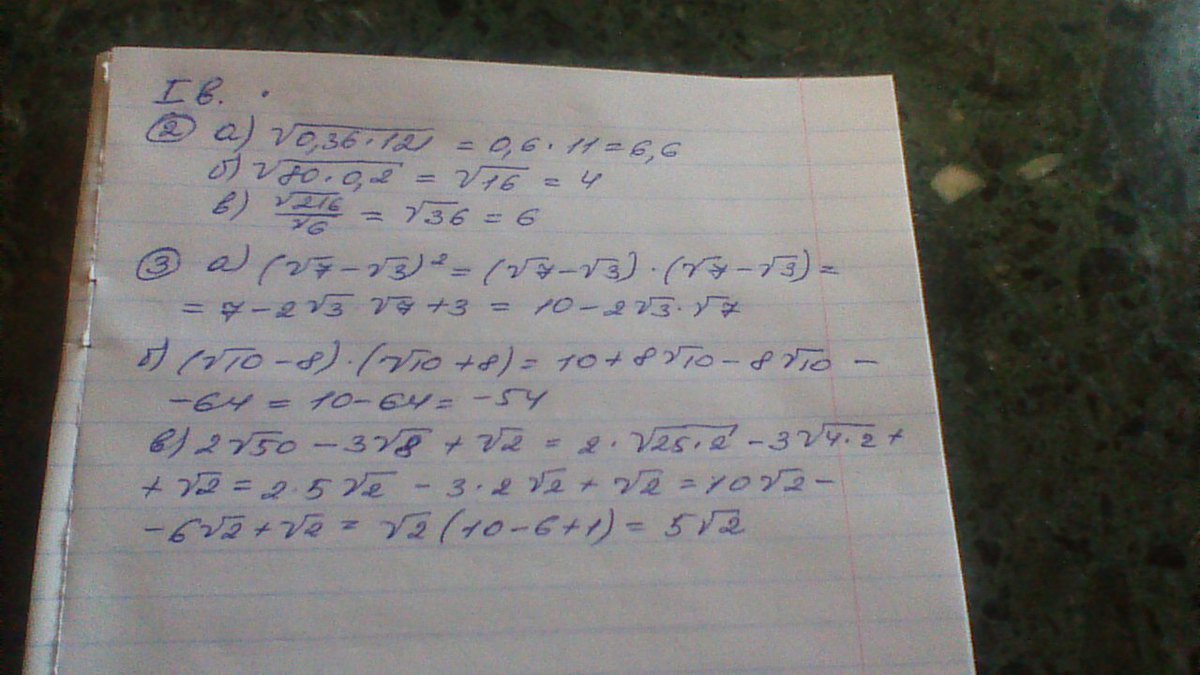 I в.
② а) √0,36·121 = 0,6·11=6,6
б) √80·0,2 = √16 = 4
в) √216/√6 = √36 = 6
③ а) (√7-√3)²=(√7-√3)·(√7-√3)=
= 7-2√3·√7+3 = 10-2√3·√7
б) (√10-8)·(√10+8)=10+8√10-8√10-
-64=10-64=-54
в) 2√50-3√8+√2=2·√25·2-3√4·2+
+√2=2·5√2-3·2√2+√2=10√2-
-6√2+√2=√2(10-6+1)=5√2